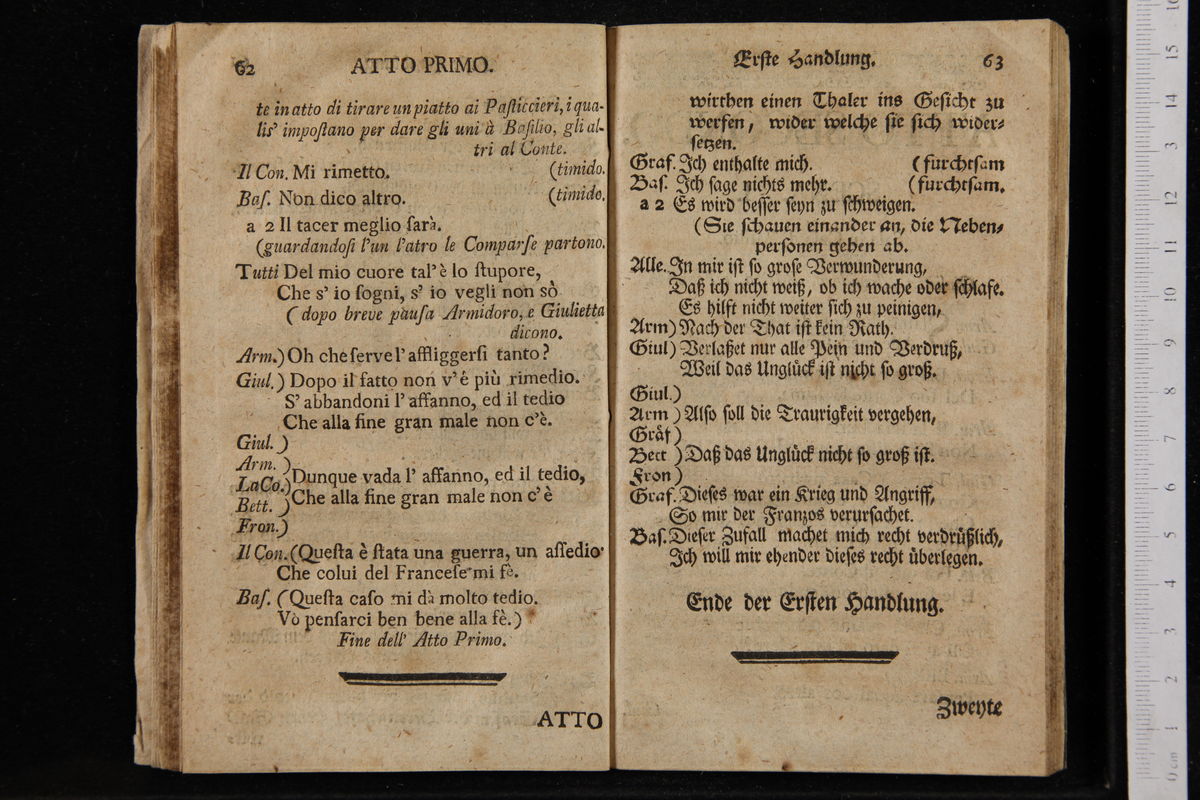 62 ATTO PRIMO.
te in atto di tirare un piatto ai Paſticcieri, i qua-
lis' impoſtano per dare gli uni à Baſilio, gli al-
tri al Conte.
Il Con. Mi rimetto. (timido.
Baſ. Non dico altro. (timido.
a 2 Il tacer meglio ſarà.
(guardandoſi l'un l'atro le Comparſe partono.
Tutti Del mio cuore tal' è lo ſtupore,
Che s' io ſogni, s' io vegli non sò
( dopo breve pauſa Armidoro, e Giulietta
dicono.
Arm.) Oh che ſerve l' affliggerſi tanto?
Giul.) Dopo il fatto non v' é più rimedio.
S' abbandoni l' affanno, ed il tedio
Che alla fine gran male non c'è.
Giul. )
Arm. )
La Co.) Dunque vada l' affanno, ed il tedio,
Bett. ) Che alla fine gran male non c' è
Fron.)
Il Con. (Queſta è ſtata una guerra, un aſſedio
Che colui del Franceſe mi fè.
Baſ. (Queſta caſo mi dà molto tedio.
Vò penſarci ben bene alla fè.)
Fine dell' Atto Primo.
ATTO
Erſte Handlung. 63
wirthen einen Thaler ins Geſicht zu
werfen, wider welche ſie ſich wider-
ſetzen.
Graf. Ich enthalte mich. (furchtſam
Baſ. Ich ſage nichts mehr. (furchtſam.
a 2 Es wird beſſer ſeyn zu ſchweigen.
(Sie ſchauen einander an, die Neben-
perſonen gehen ab.
Alle. In mir iſt ſo groſe Verwunderung,
Daß ich nicht weiß, ob ich wache oder ſchlafe.
Es hilft nicht weiter ſich zu peinigen,
Arm) Nach der That iſt kein Rath.
Giul) Verlaßet nur alle Pein und Verdruß,
Weil das Unglück iſt nicht ſo groß.
Giul.)
Arm ) Alſo ſoll die Traurigkeit vergehen,
Gräf)
Bett ) Daß das Unglück nicht ſo groß iſt.
Fron)
Graf. Dieſes war ein Krieg und Angriff,
So mir der Franzos verurſachet.
Baſ. Dieſer Zufall machet mich recht verdrüßlich,
Ich will mir ehender dieſes recht überlegen.
Ende der Erſten Handlung.
Zweyte
0 cm 1 2 3 4 5 6 7 8 9 10 11 12 13 14 15 16